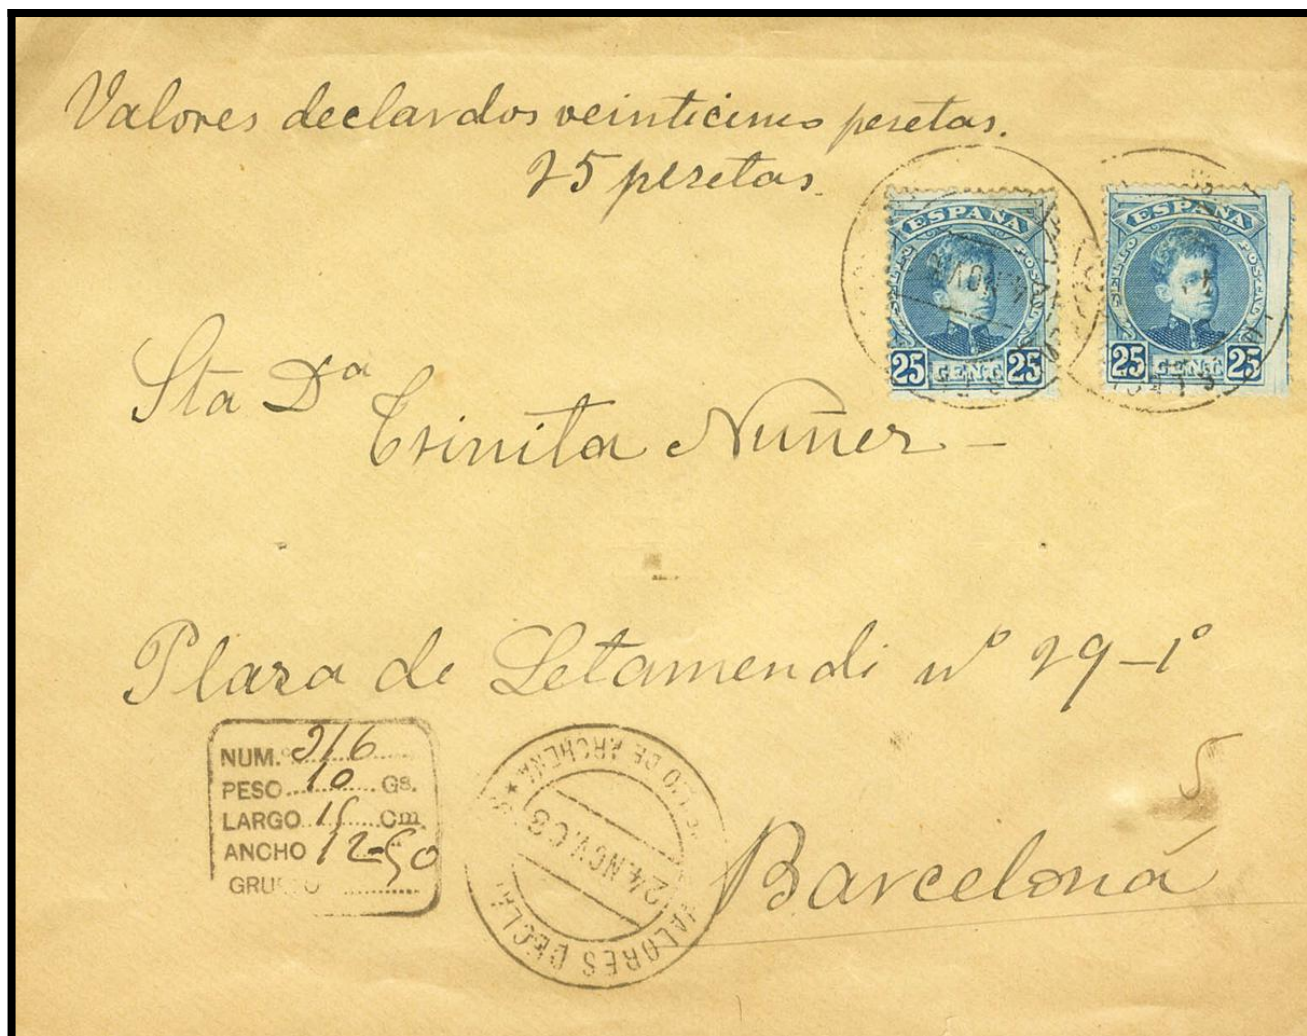 Valores declardos veinticinco pesetas.
25 pesetas.
ESPAÑA
SELLO POSTAL
25 CENT 25
ESPAÑA
SELLO POSTAL
25 CENT 25
Sta Dª
Trinita Nuñez -
Plaza de Letamendi nº 29-1º
5
Barcelona
NUM. 216
PESO 10 Gs.
LARGO 15 Cm.
ANCHO 12-50
VALORES DECLA
DE ARCHENA
24.NOV.08